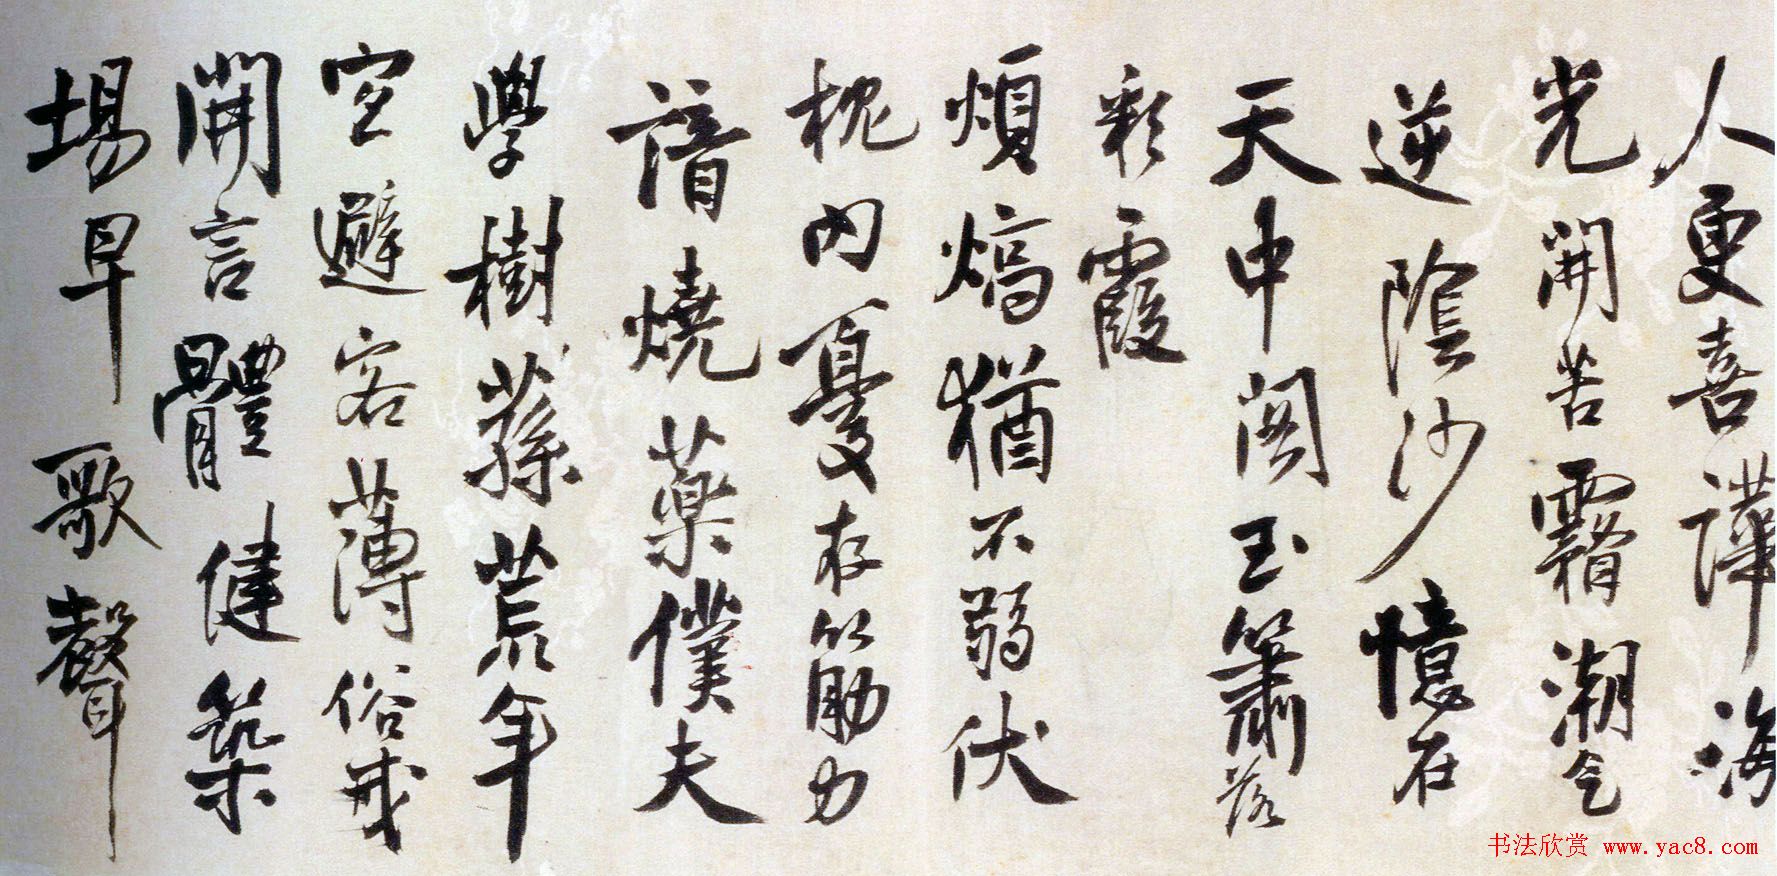 人更喜譁海
光開苦霧潮氣
逆陰沙憶在
天中閣玉簫落
彩霞
煩熇猶不弱伏
枕內憂存筋力
諳燒藥僕夫
學樹蓀荒年
室避客薄俗戒
開言體健築
場早歌聲
书法欣赏 www.yac8.com